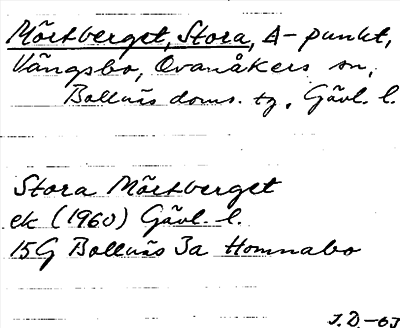 Mörtberget, Stora, Δ-punkt,
Vängsbo, Ovanåkers sn,
Bollnäs doms. tg, Gävl. l.
Stora Mörtberget
ek (1960) Gävl. l.
15G Bollnäs 3a Homnabo
J.D.-63